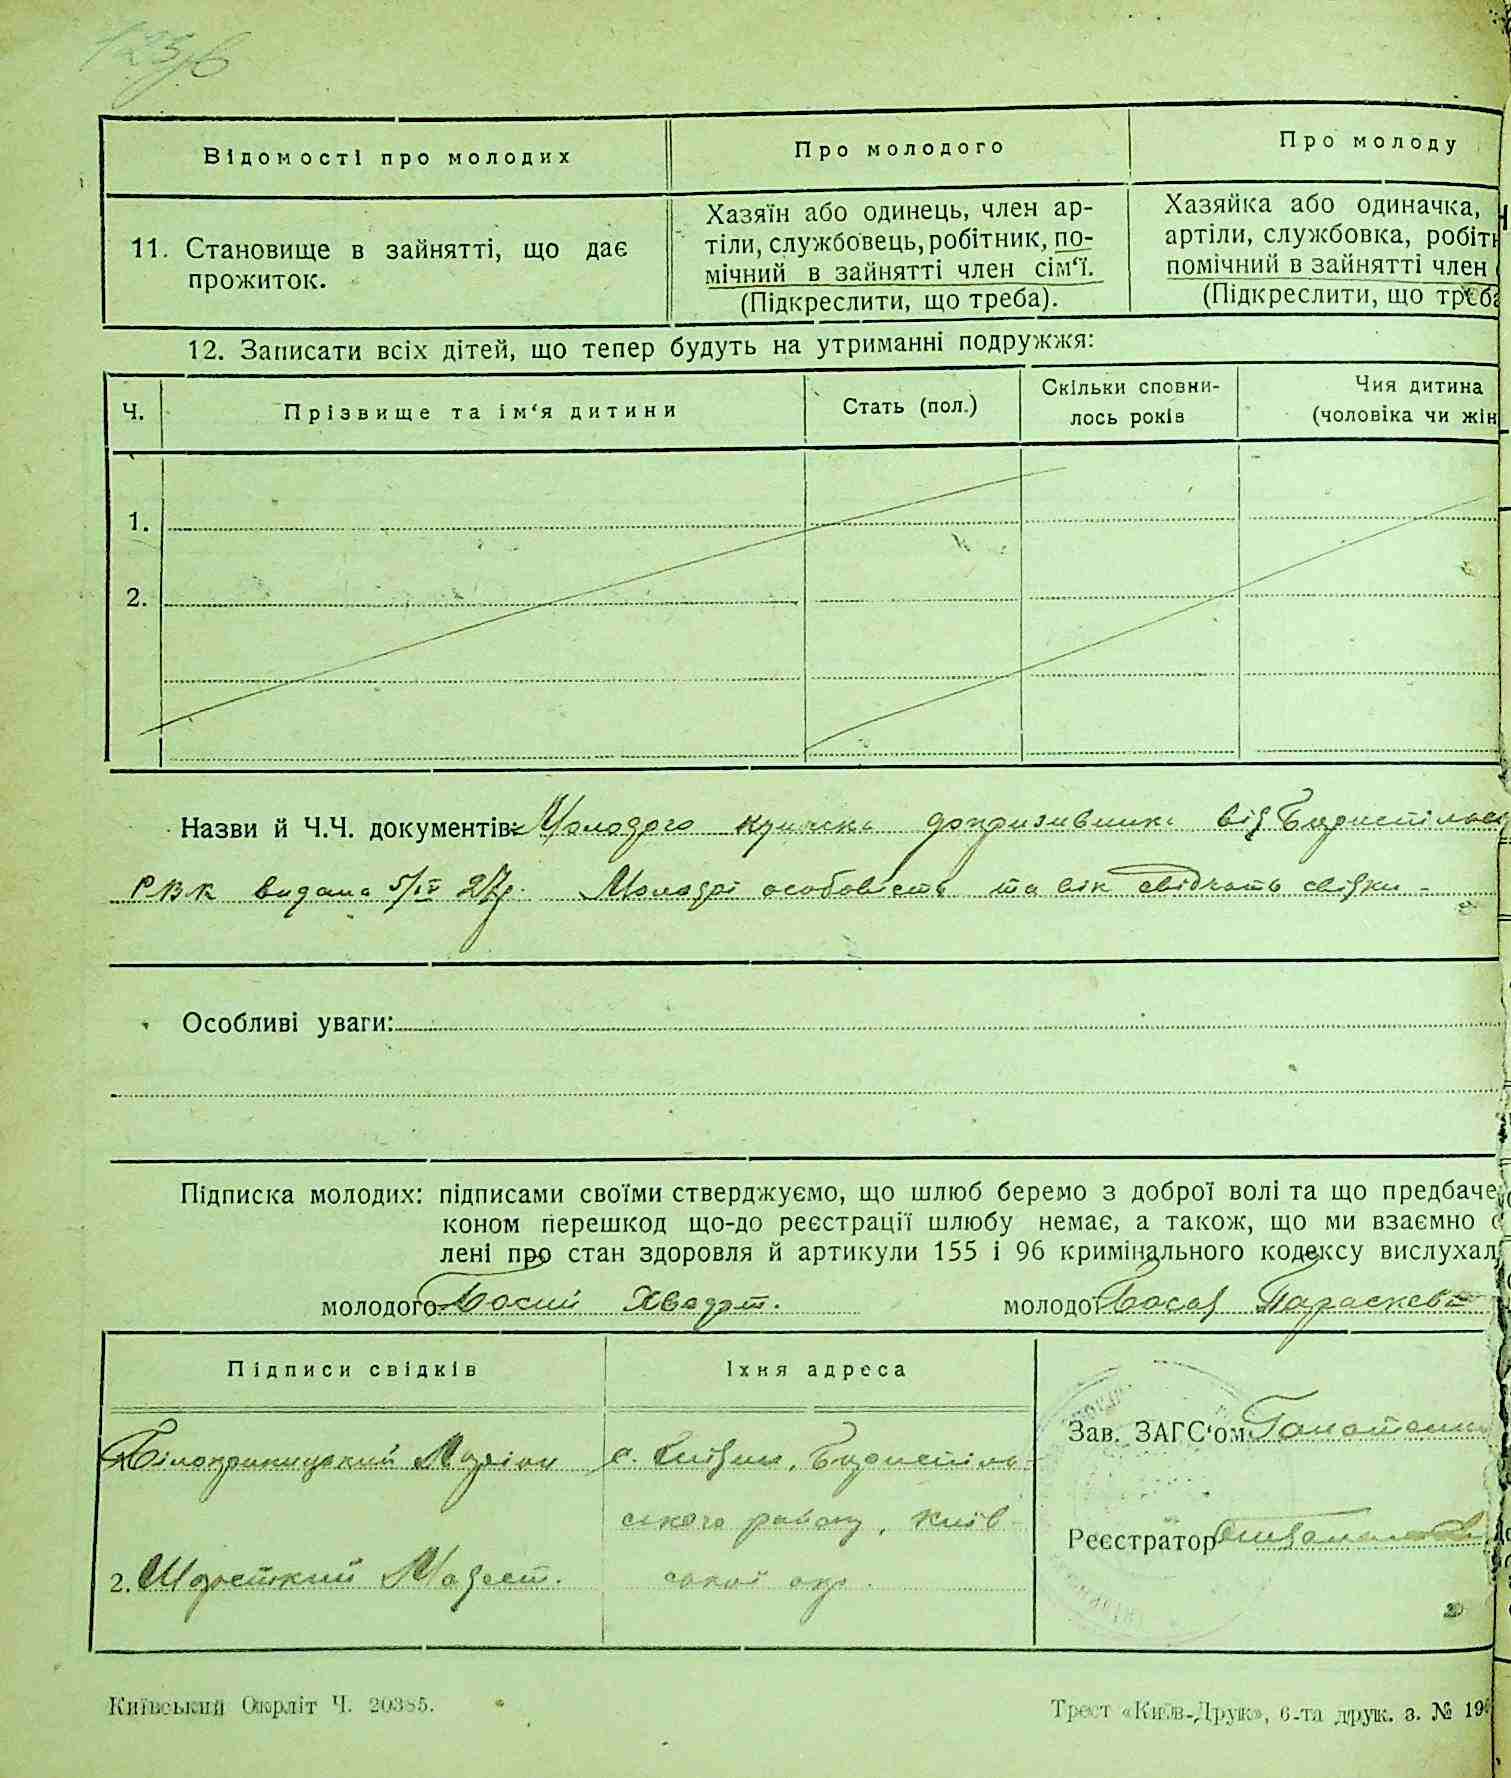 Відомості про молодих
Про молодого
Про молоду
11. Становище в зайнятті, що дає прожиток.
Хазяїн або одинець, член ар-
тіли, службовець, робітник, по-
мічний в зайнятті член сім‘ї.
(Підкреслити, що треба).
Хазяйка або одиначка,
артіли, службовка, робітн
помічний в зайнятті член
(Підкреслити, що треба
12. Записати всіх дітей, що тепер будуть на утриманні подружжя:
Ч.
Прізвище та ім‘я дитини
Стать (пол.)
Скільки сповни-
лось років
Чия дитина
(чоловіка чи жін
1.
2.
Назви й Ч.Ч. документів: Молодого допризивника від
Р.В.К видана 5/ІV 27р. Молодої особовість та вік свідчать свідки -
Особливі уваги:
Підписка молодих: підписами своїми стверджуємо, що шлюб беремо з доброї волі та що предбаче
коном перешкод що-до реєстрації шлюбу немає, а також, що ми взаємно с
лені про стан здоровля й артикули 155 і 96 кримінального кодексу вислухал
молодого Босий Хведот.
молодої Босая Параскева
Підписи свідків
Їхня адреса
Білокриницький
с. Бориспіль-
ського району, Київ-
2.
ської окр.
Зав. ЗАГС‘ом
Реєстратор
Київський Окрліт Ч. 20385.
Трест «Київ-Друк», 6-та друк. з. № 19